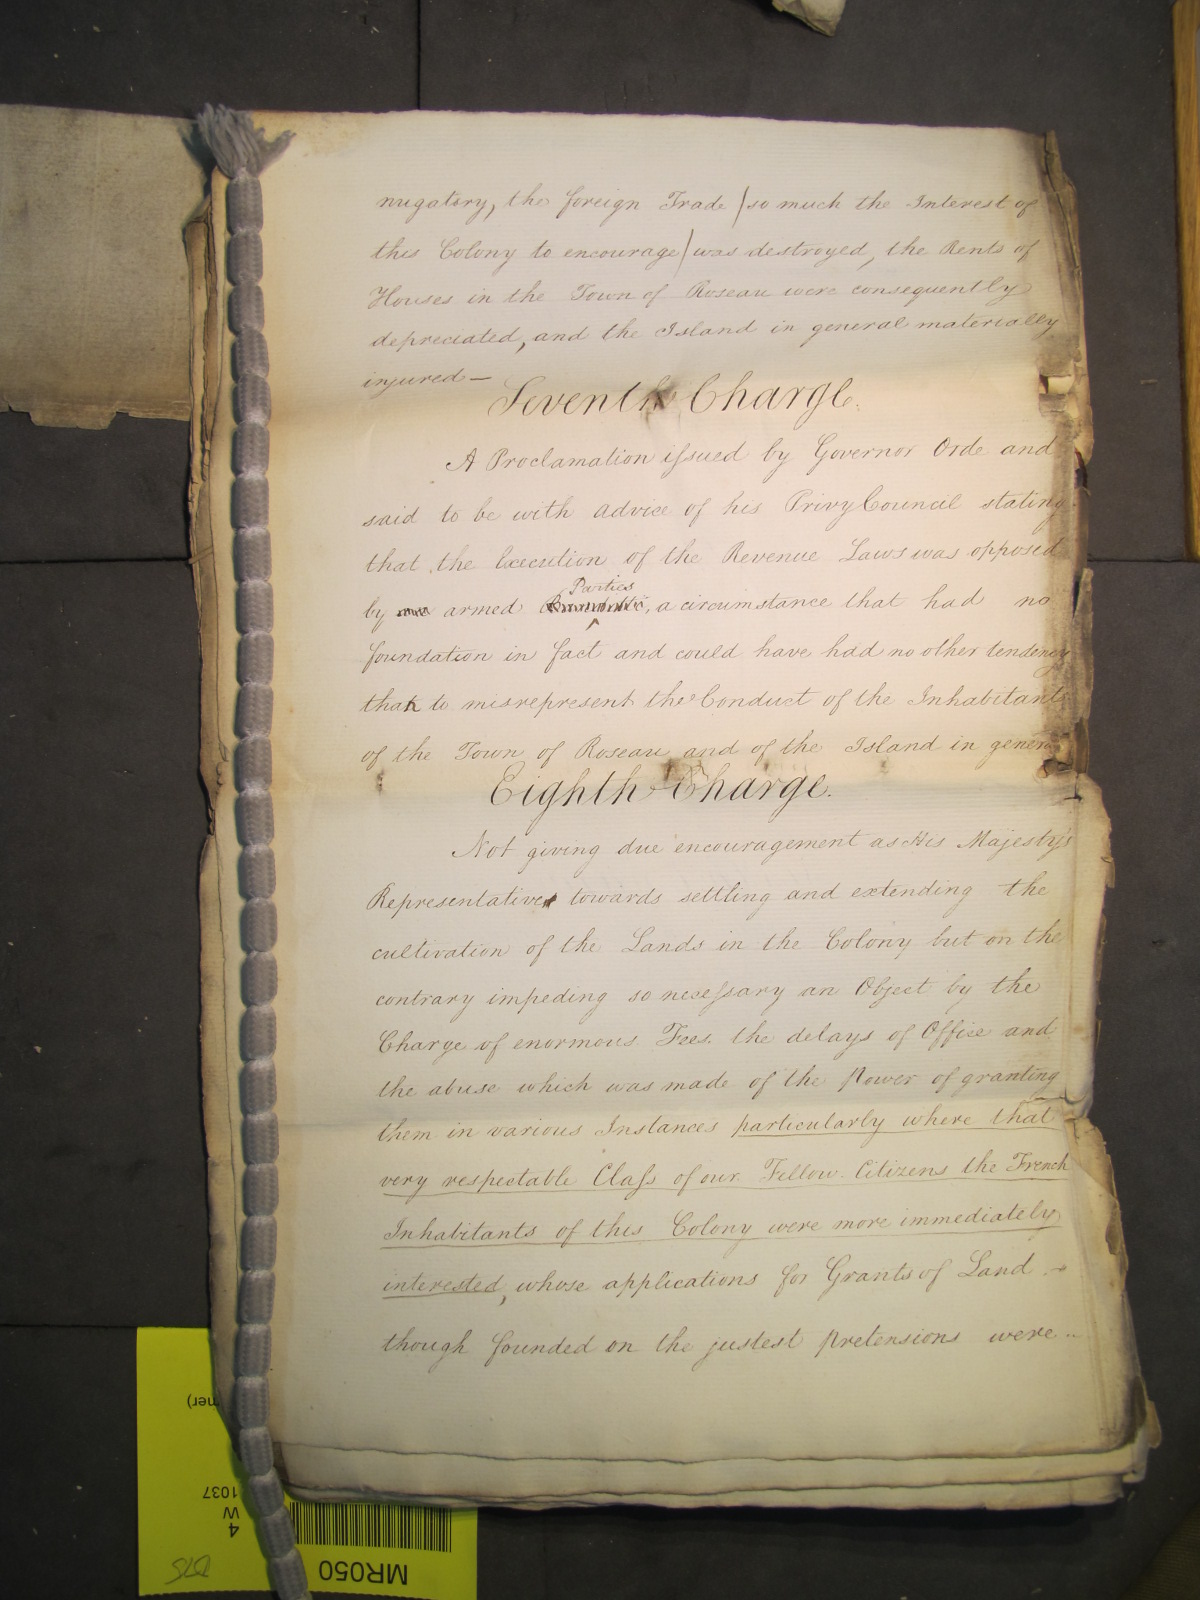 nugatory, the foreign Trade (so much the Interest of
this Colony to encourage) was destroyed, the Rents of
Houses in the Town of Roseau were consequently
depreciated, and the Island in general materially
injured —
Seventh Charge.
A Proclamation issued by Governor Orde and
said to be with advice of his Privy Council stating
that the Execution of the Revenue Laws was opposed
by armed Parties, a circumstance that had no
foundation in fact and could have had no other tendency
than to misrepresent the Conduct of the Inhabitants
of the Town of Roseau and of the Island in general
Eighth Charge.
Not giving due encouragement as His Majesty's
Representative towards settling and extending the
cultivation of the Lands in the Colony but on the
contrary impeding so necessary an Object by the
Charge of enormous Fees. the delays of Office and
the abuse which was made of the Power of granting
them in various Instances particularly where that
very respectable Class of our Fellow Citizens the French
Inhabitants of this Colony were more immediately
interested, whose applications for Grants of Land -
though founded on the justest pretensions were -
mer)
1037
W
4
MR050